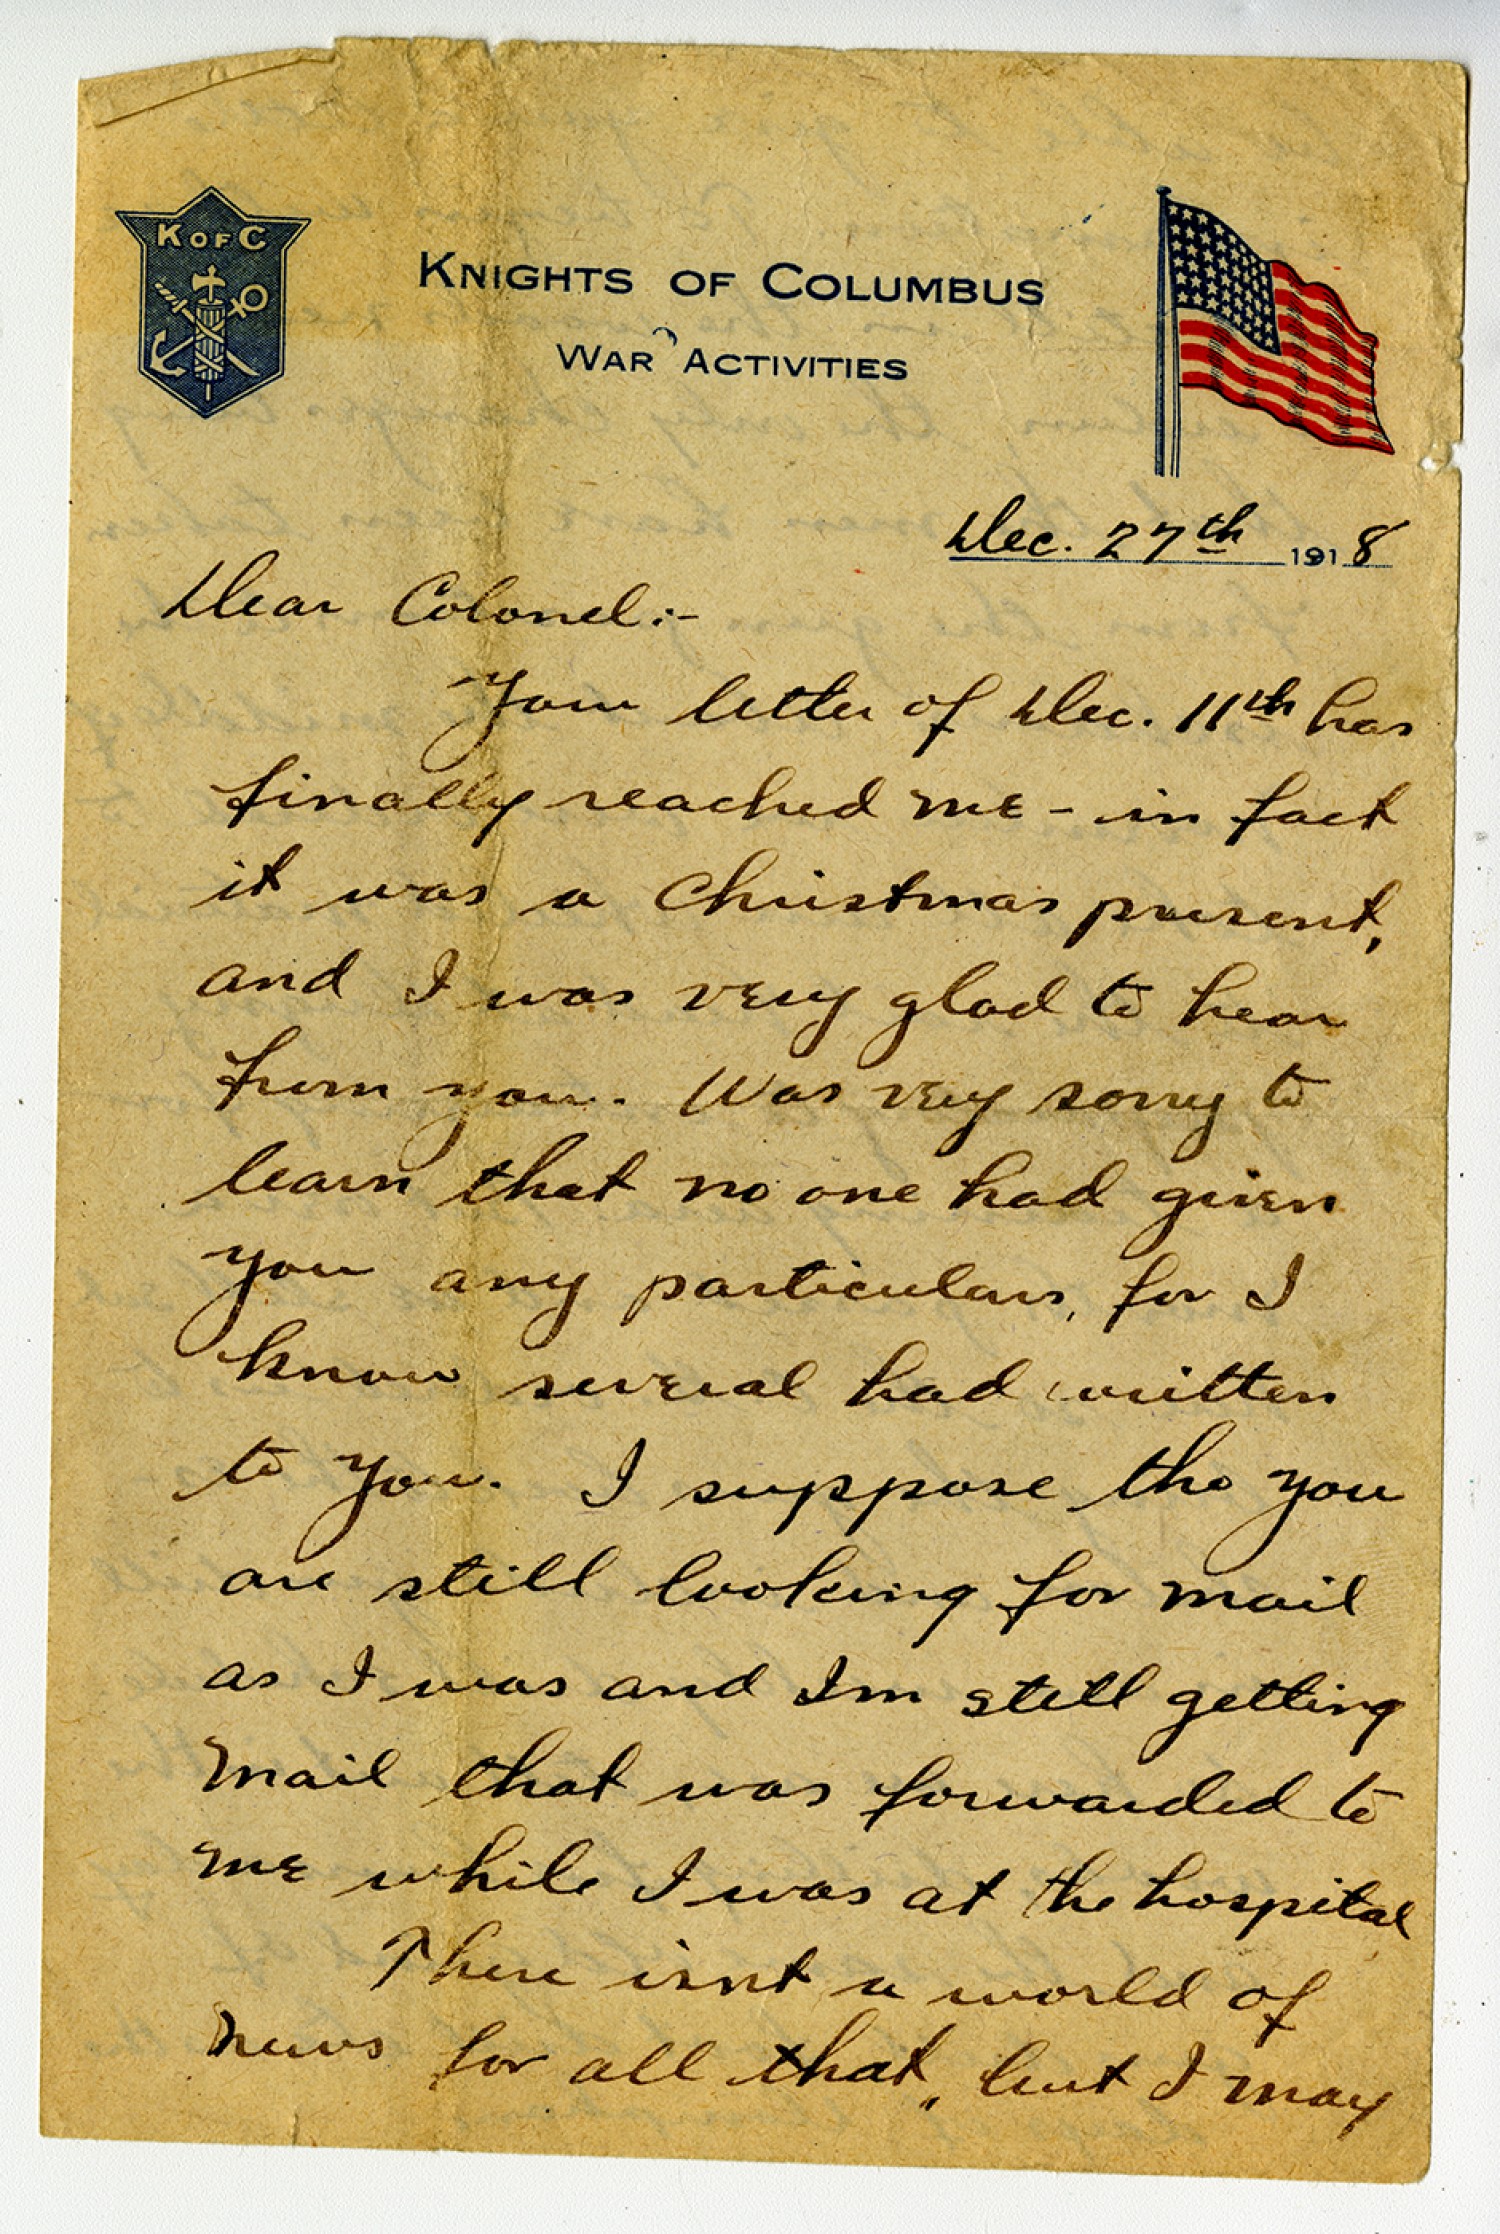 K OF C
KNIGHTS OF COLUMBUS
WAR ACTIVITIES
Dec. 27th 1918
Dear Colonel:-
Your letter of Dec. 11th has
finally reached me - in fact
it was a Christmas present,
and I was very glad to hear
from you. Was very sorry to
learn that no one had given
you any particulars, for I
know several had written
to you. I suppose tho you
are still looking for mail
as I was and Im still getting
mail that was forwarded to
me while I was at the hospital
There isnt a world of
news for all that, but I may